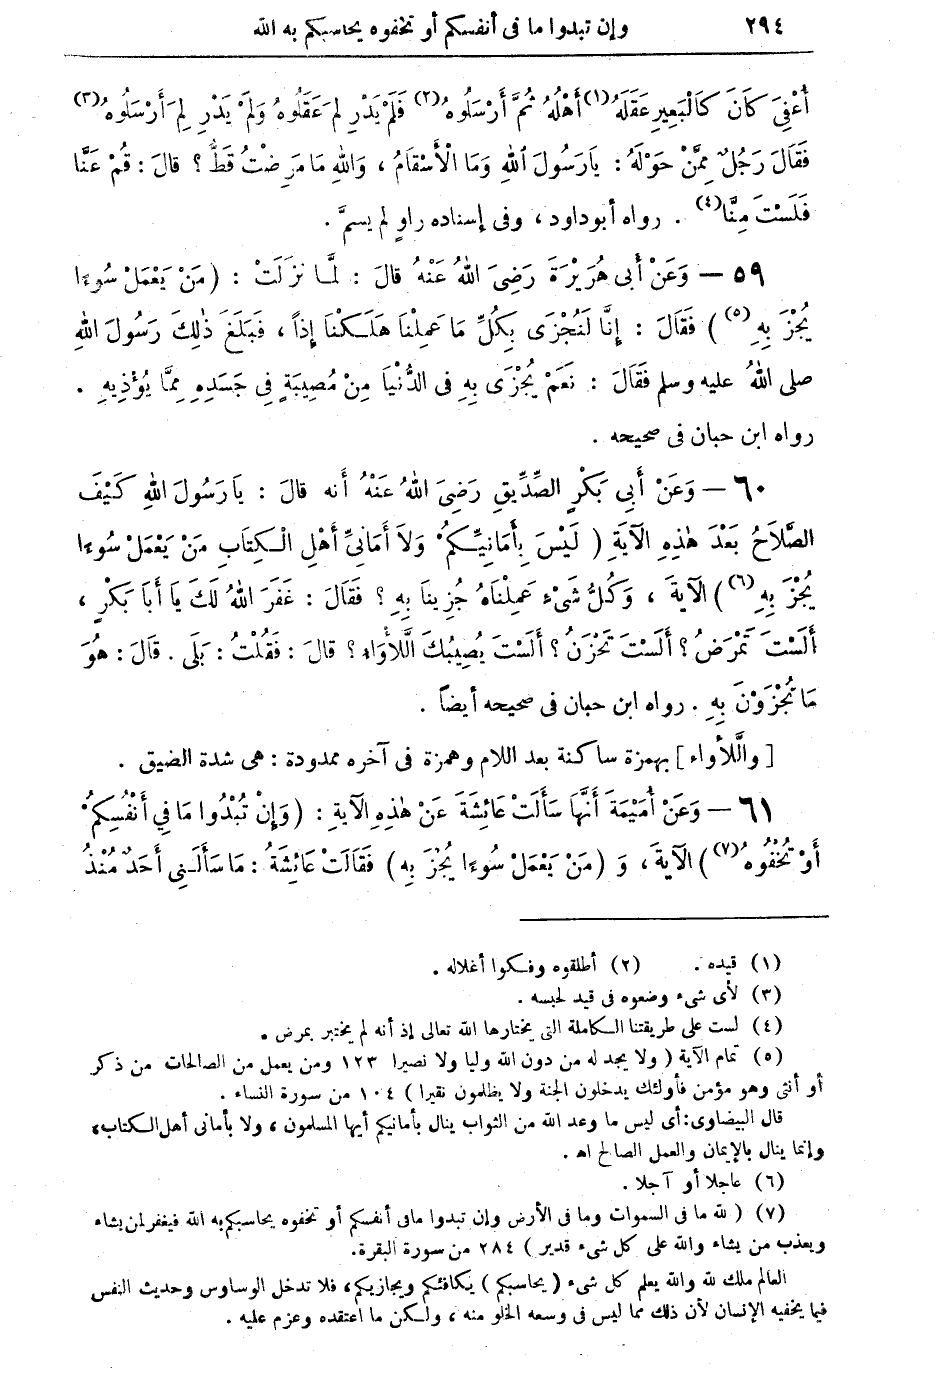 ٢٩٤ وإن تبدوا ما فى أنفسكم أو تخفوه يحاسبكم به الله
أُعْفِىَ كَانَ كَالْبَعِيرِ عَقَلَهُ(١) أَهْلُهُ ثُمَّ أَرْسَلُوهُ(٢) فَلَمْ يَدْرِ لِمَ عَقَلُوهُ وَلَمْ يَدْرِ لِمَ أَرْسَلُوهُ(٣)
فَقَالَ رَجُلٌ مِمَّنْ حَوْلَهُ : يَارَسُولَ اللهِ وَمَا الْأَسْقَامُ ، وَاللهِ مَا مَرِضْتُ قَطُّ ؟ قالَ : قُمْ عَنَّا
فَلَسْتَ مِنَّا(٤) . رواه أبوداود ، وفى إسناده راوٍ لم يسمَّ .
٥٩ — وَعَنْ أَبِى هُرَيْرَةَ رَضِىَ اللهُ عَنْهُ قالَ : لَمَّا نَزَلَتْ : (مَنْ يَعْمَلْ سُوءًا
يُجْزَ بِهِ(٥)) فَقَالَ : إِنَّا لَنُجْزَى بِكُلِّ مَا عَمِلْنَا هَلَكْنَا إِذاً ، فَبَلَغَ ذٰلِكَ رَسُولَ اللهِ
صلى اللهُ عليه وسلم فَقَالَ : نَعَمْ يُجْزَى بِهِ فى الدُّنْيَا مِنْ مُصِيبَةٍ فِى جَسَدِهِ مِمَّا يُؤْذِيهِ .
رواه ابن حبان فى صحيحه .
٦٠ — وَعَنْ أَبِى بَكْرٍ الصِّدِّيقِ رَضِىَ اللهُ عَنْهُ أنه قالَ : يَارَسُولَ اللهِ كَيْفَ
الصَّلَاحُ بَعْدَ هٰذِهِ الْآيَةِ ( لَيْسَ بِأَمَانِيِّكُمْ وَلَا أَمَانِيِّ أَهْلِ الْكِتَابِ مَنْ يَعْمَلْ سُوءًا
يُجْزَ بِهِ(٦)) الْآيَةَ ، وَكُلُّ شَىْءٍ عَمِلْنَاهُ جُزِينَا بِهِ ؟ فَقَالَ : غَفَرَ اللهُ لَكَ يَا أَبَا بَكْرٍ ،
أَلَسْتَ تَمْرَضُ ؟ أَلَسْتَ تَحْزَنُ ؟ أَلَسْتَ يُصِيبُكَ اللَّأْوَاءُ ؟ قالَ : فَقُلْتُ : بَلَى . قَالَ : هُوَ
مَا تُجْزَوْنَ بِهِ . رواه ابن حبان فى صحيحه أيضاً .
[ والَّلأواء ] بهمزة ساكنة بعد اللام وهمزة فى آخره ممدودة : هى شدة الضيق .
٦١ — وَعَنْ أُمَيْمَةَ أَنَّهَا سَأَلَتْ عَائِشَةَ عَنْ هٰذِهِ الْآيَةِ : (وَإِنْ تُبْدُوا مَا فِي أَنْفُسِكُمْ
أَوْ تُخْفُوهُ(٧)) الْآيَةَ ، وَ (مَنْ يَعْمَلْ سُوءًا يُجْزَ بِهِ ) فَقَالَتْ عَائِشَةُ : مَا سَأَلَنِى أَحَدٌ مُنْذُ
(١) قيده . (٢) أطلقوه وفكوا أغلاله .
(٣) لأى شىء وضعوه فى قيد لحبسه .
(٤) لست على طريقتنا الكاملة التى يختارها الله تعالى إذ أنه لم يختبر بمرض .
(٥) تمام الآية ( ولا يجد له من دون الله وليا ولا نصيرا ١٢٣ ومن يعمل من الصالحات من ذكر
أو أنثى وهو مؤمن فأولئك يدخلون الجنة ولا يظلمون نقيرا ) ١٠٤ من سورة النساء .
قال البيضاوى : أى ليس ما وعد الله من الثواب ينال بأمانيكم أيها المسلمون ، ولا بأمانى أهل الكتاب،
وإنما ينال بالإيمان والعمل الصالح اه .
(٦) عاجلا أو آجلا .
(٧) ( لله ما فى السموات وما فى الأرض وإن تبدوا مافى أنفسكم أو تخفوه يحاسبكم به الله فيغفر لمن يشاء
ويعذب من يشاء والله على كل شىء قدير ) ٢٨٤ من سورة البقرة.
العالم ملك لله والله يعلم كل شىء ( يحاسبكم ) يكافئكم ويجازيكم، فلا تدخل الوساوس وحديث النفس
فيما يخفيه الإنسان لأن ذلك مما ليس فى وسعه الخلو منه ، ولكن ما اعتقده وعزم عليه .